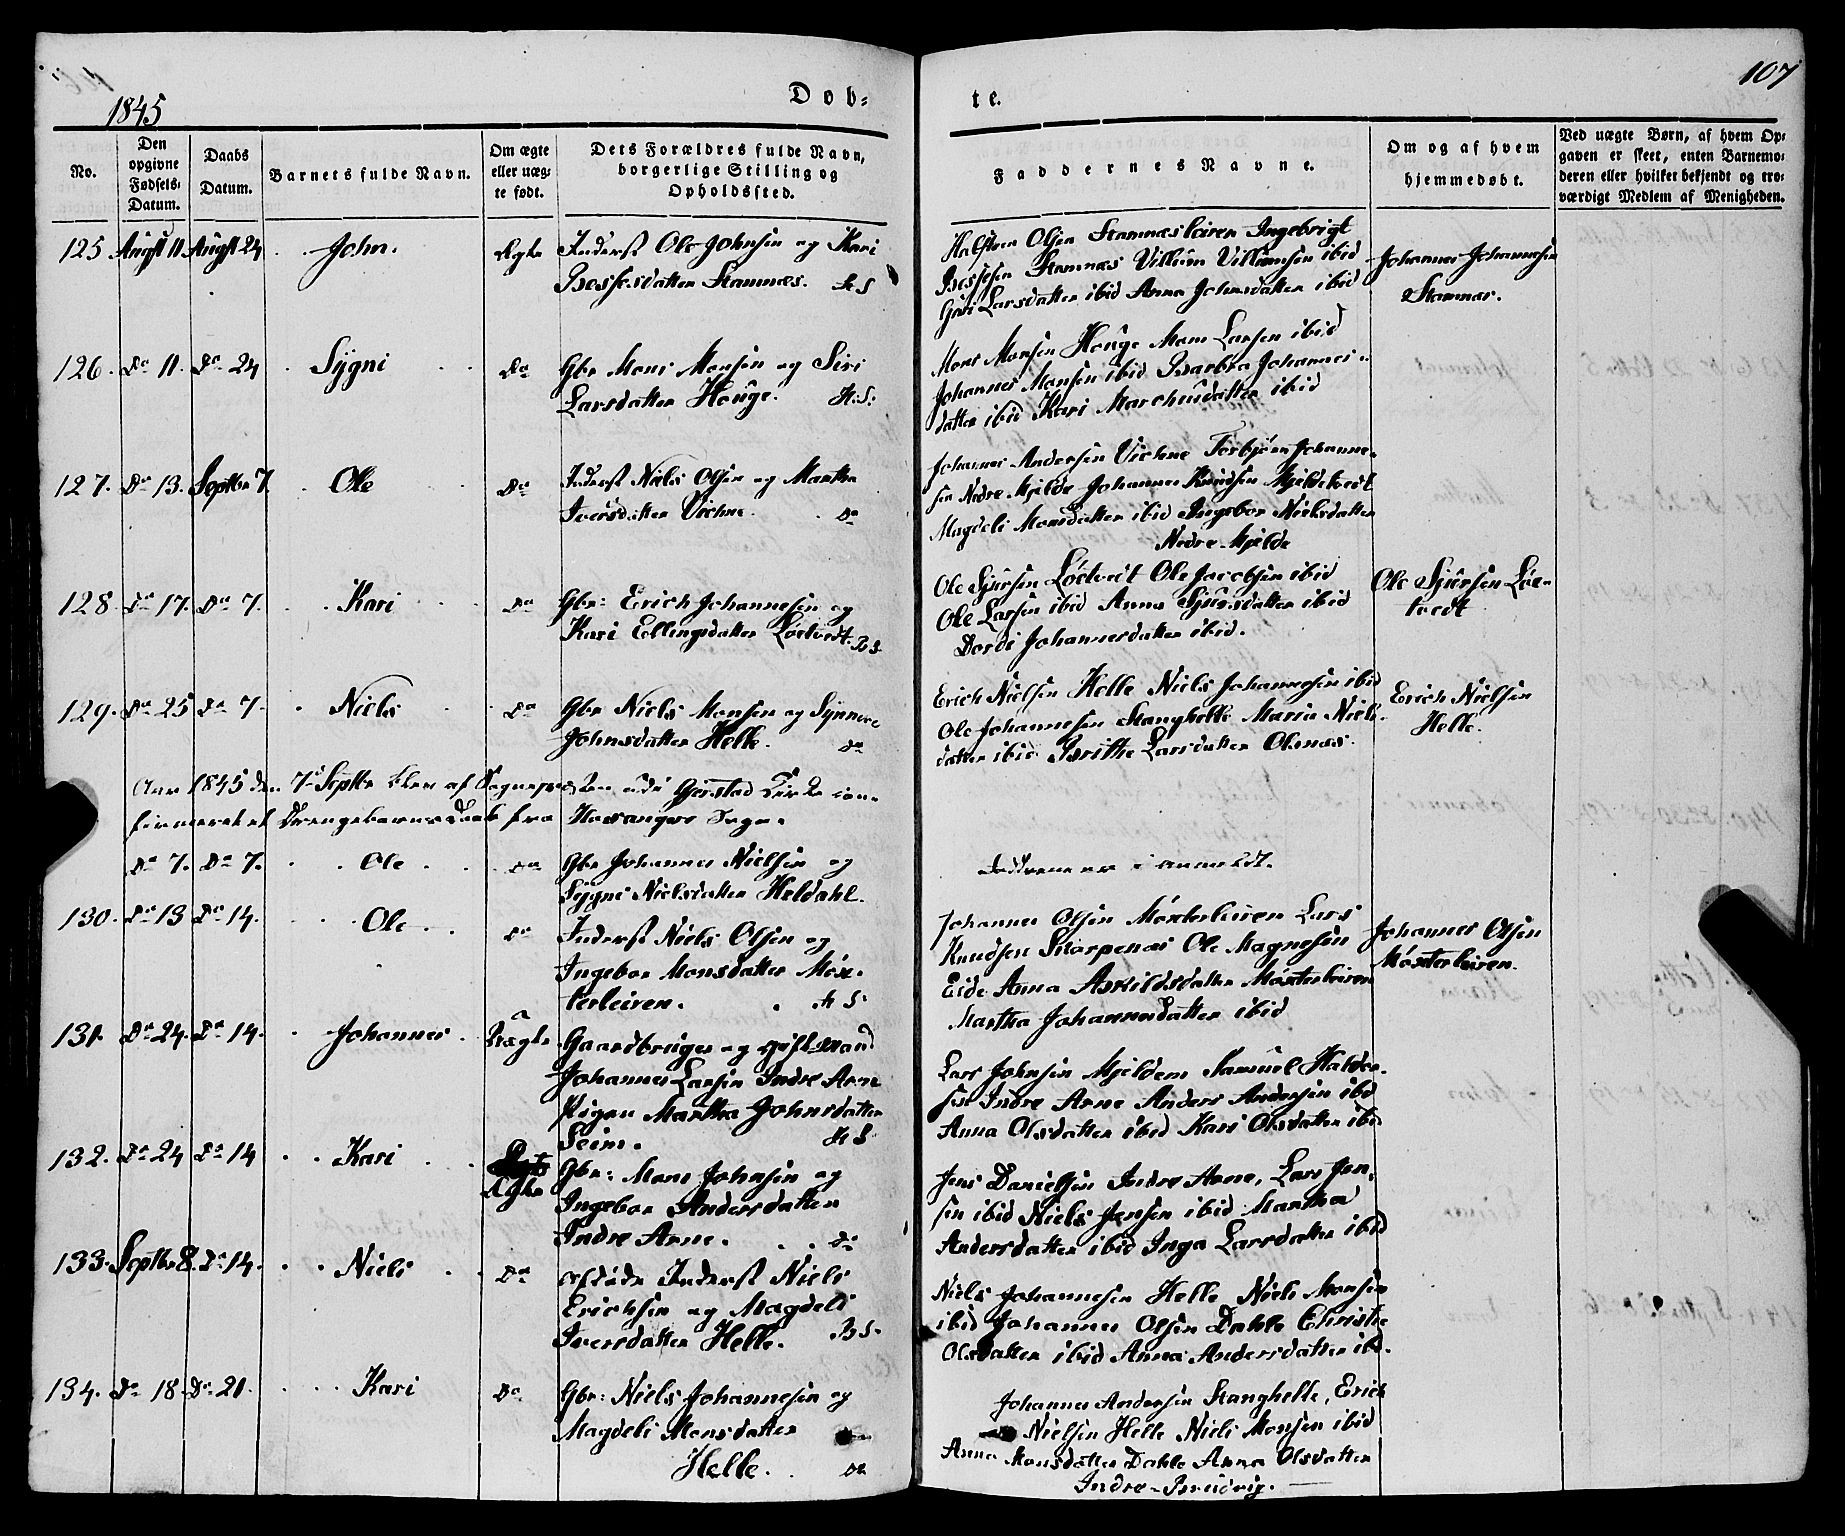 107
1845
Dob-
te.
No.
Den opgivne Fødsels-Datum.
Daabs Datum.
Barnets fulde Navn.
Om ægte eller uæg-te født.
Dets Forældres fulde Navn, borgerlige Stilling og Opholdssted.
Faddernes Navne.
Om og af hvem hjemmedøbt.
Ved uægte Børn, af hvem Op-
gaven er skeet, enten Barnemo-
deren eller hvilket bekjendt og tro-
værdigt Medlem af Menigheden.
125 Augst 11 Augst 24 John. Ægte Inderst Ole Johnsen og Kari
Bessesdatter Stamnæs. H S
Halsteen Olsen Stamnæsleiren Ingebrigt
Bessesen Stamnæs Villum Villumsen ibid
Guri Larsdatter ibid Anna Johnsdatter ibid
Johannes Johannesen
Stamnæs.
126. Do 11. Do 24 Sygni Do Gbr Mons Monsen og Siri
Larsdatter Houge. H. S:
Mons Monsen Houge Mons Larsen ibid
Johannes Monsen ibid Barbra Johannes-
datter ibid Kari Marthusdatter ibid
127. Do 13. Septbr 7. Ole Do Inderst Niels Olsen og Martha
Iversdatter Vichne. Do
Johannes Andersen Vichne Torbjørn Johanne-
sen Nedre Mjelde Johannes Knudsen Mjeldetvedt
Magdeli Monsdatter ibid Ingebor Nielsdatter
Nedre Mjelde
128 Do 17. Do 7. Kari Do Gbr: Erich Johannesen og
Kari Ellingsdatter Løetvedt. B S
Ole Sjursen Løetvedt Ole Jacobsen ibid
Ole Larsen ibid Anna Sjursdatter ibid
Dordi Johannesdatter ibid.
Ole Sjursen Løe-
tvedt
129. Do 25 Do 7. Niels Do Gbr Niels Monsen og Synneve
Johnsdatter Helle. Do
Erich Nielsen Helle Niels Johannesen ibid
Ole Johannesen Stanghelle Maria Niels-
datter ibid Brithe Larsdatter Olsnæs.
Erich Nielsen
Helle.
Aar 1845 den 7de Septbr blev af Sognepræsten udi Gjerstad Kirke con-
firmeret et Drengebarns Daab fra Hosangers Sogn.
Do 7. Do 7. Ole Do Gbr Johannes Nielsen og
Sygni Nielsdatter Heldahl.
Faddrene er i anmeldt.
130. Do 13 Do 14. Ole Do Inderst Niels Olsen og
Ingebor Monsdatter Mox-
terleiren. H S
Johannes Olsen Moxterleiren Lars
Knudsen Skorpenæs Ole Magnesen
Eide Anna Askildsdatter Moxterleiren
Martha Johannesdatter ibid
Johannes Olsen
Moxterleiren.
131. Do 24. Do 14. Johannes Uægte Gaardbruger og gift Mand
Johannes Larsen Indre Arne
Pigen Martha Johnsdatter
Seim. H S
Lars Johnsen Mjeldem Samuel Halder-
sen Indre Arne Anders Andersen ibid
Anna Olsdatter ibid Kari Olsdatter ibid
132. Do 24 Do 14 Kari Ægte Gbr: Mons Johnsen og
Ingebor Andersdatter
Indre Arne. Do
Jens Danielsen Indre Arne, Lars Jen-
sen ibid Niels Jensen ibid Martha
Andersdatter ibid Inga Larsdatter ibid
133. Septbr 8. Do 14. Niels Do afdøde Inderst Niels
Erichsen og Magdeli
Iversdatter Helle. B S.
Niels Johannesen Helle Niels Monsen
ibid Johannes Olsen Dahle Christie
Olsdatter ibid Anna Andersdatter ibd.
134. Do 18. Do 21. Kari Do Gbr: Niels Johannesen og
Magdeli Monsdatter
Helle. Do
Johannes Andersen Stanghelle, Erich
Nielsen Helle Niels Monsen ibid
Anna Monsdatter Dahle Anna Olsdatter
Indre-Bruvig.